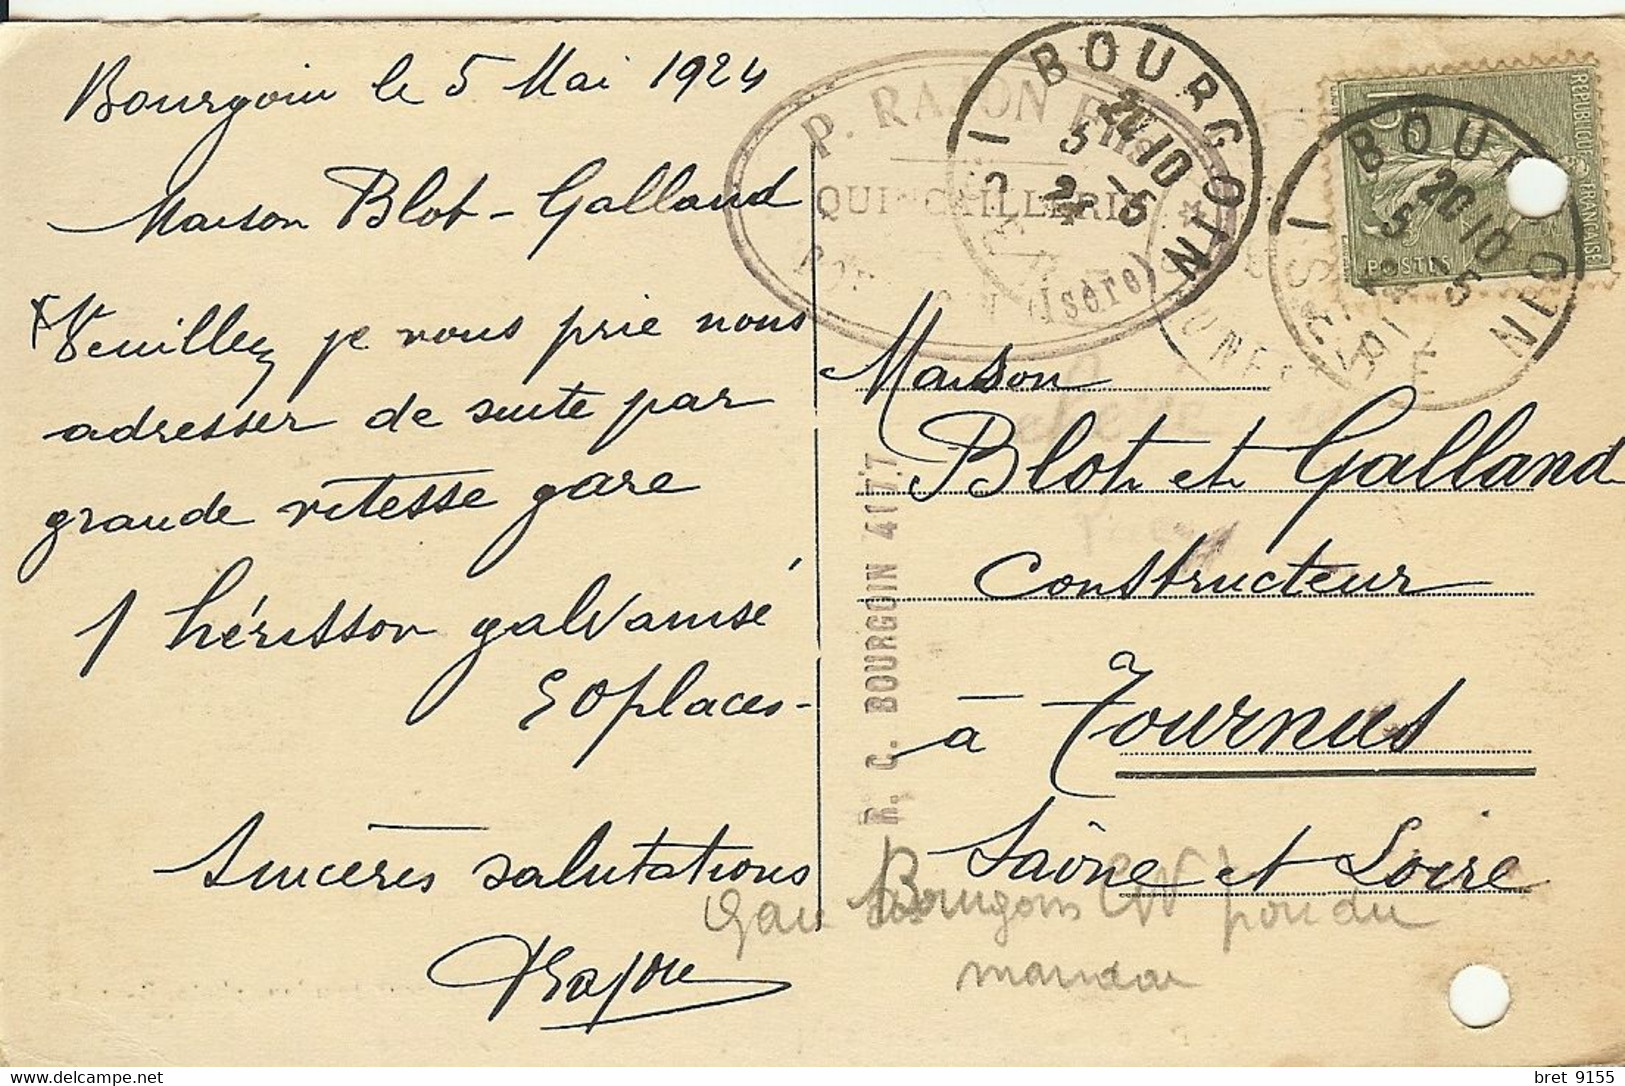 Bourgoin le 5 Mai 1924
Maison Blot-Galland
Veuillez je vous prie nous
adresser de suite par
grande vitesse gare
1 hérisson galvanisé
50 places-
Sincères salutations
PRajon
P. RAJON Fils
QUINCAILLERIE
(Isère)
BOURGOIN
24 10
5 - 5
24
ISÈRE
BOURGOIN
20 10
5 - 5
ISÈRE
REPUBLIQUE FRANÇAISE
15
POSTES
R. C. BOURGOIN 4177
Maison
Blot et Galland
Constructeur
à Tournus
Saône et Loire
bret 9155